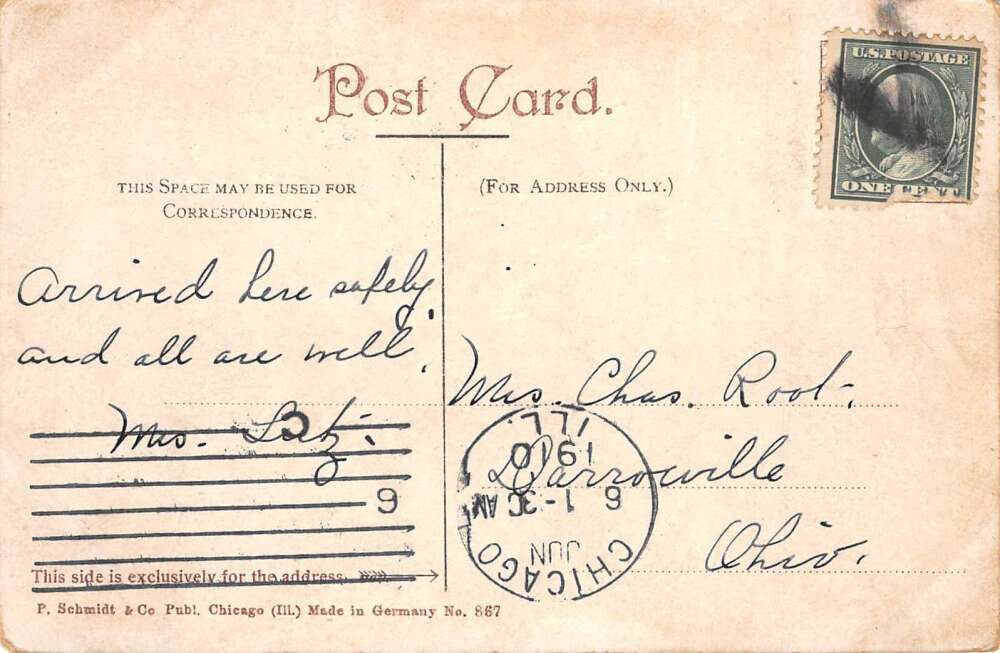 Post Card.
U.S. POSTAGE
ONE CENT
THIS SPACE MAY BE USED FOR
CORRESPONDENCE.
(FOR ADDRESS ONLY.)
Arrived here safely
and all are well.
Mrs. Lutz.
Mrs. Chas. Root.
Darrowville
Ohio.
CHICAGO
ILL.
JUN
1-30 AM
1910
This side is exclusively for the address.
P. Schmidt & Co Publ. Chicago (Ill.) Made in Germany No. 867